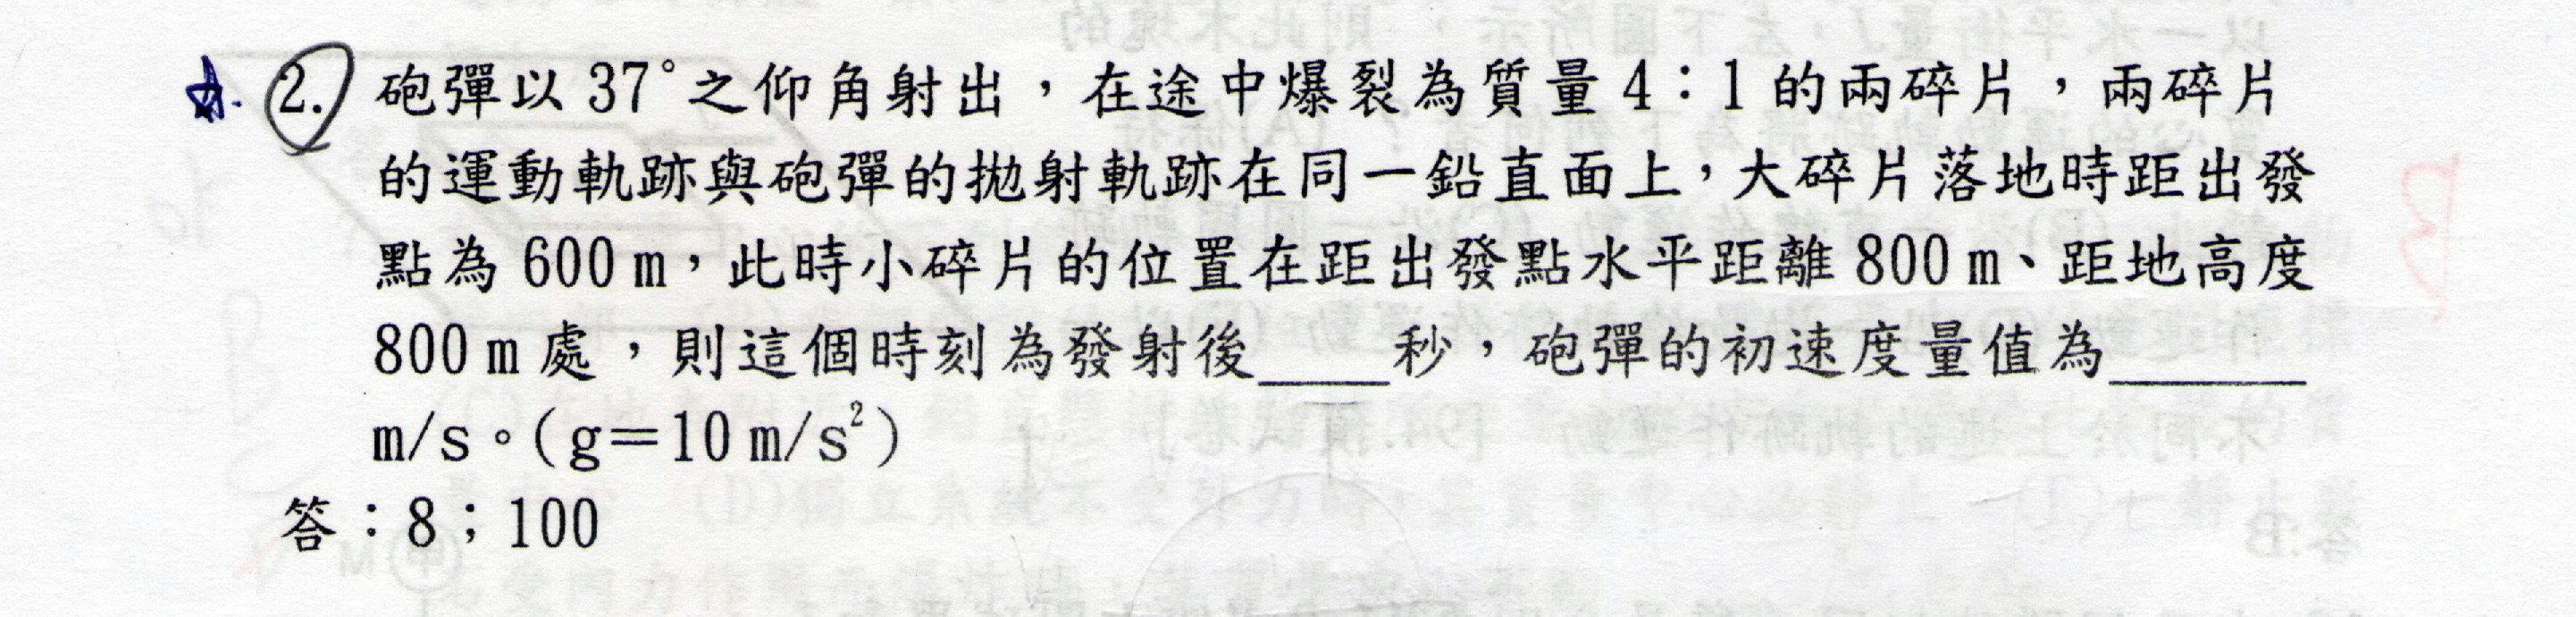 2. 砲彈以37°之仰角射出，在途中爆裂為質量4：1的兩碎片，兩碎片
的運動軌跡與砲彈的拋射軌跡在同一鉛直面上，大碎片落地時距出發
點為600 m，此時小碎片的位置在距出發點水平距離800 m、距地高度
800 m處，則這個時刻為發射後____秒，砲彈的初速度量值為______
m/s。（g＝10 m/s²）
答：8；100